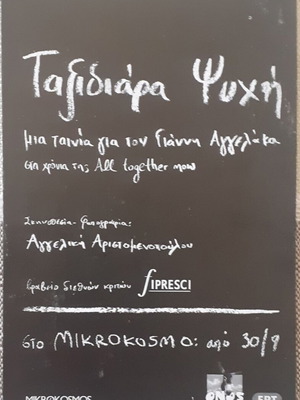 Ταξιδιάρα Ψυχή
μια ταινία για τον Γιάννη Αγγελάκα
στα χρόνια της All together now
Σκηνοθεσία - Φωτογραφία:
Αγγελική Αριστομενοπούλου
Βραβείο διεθνών κριτών FIPRESCI
στο MIKROKOSMO: από 30/9
MIKROKOSMOS ONOS ΕΡΤ